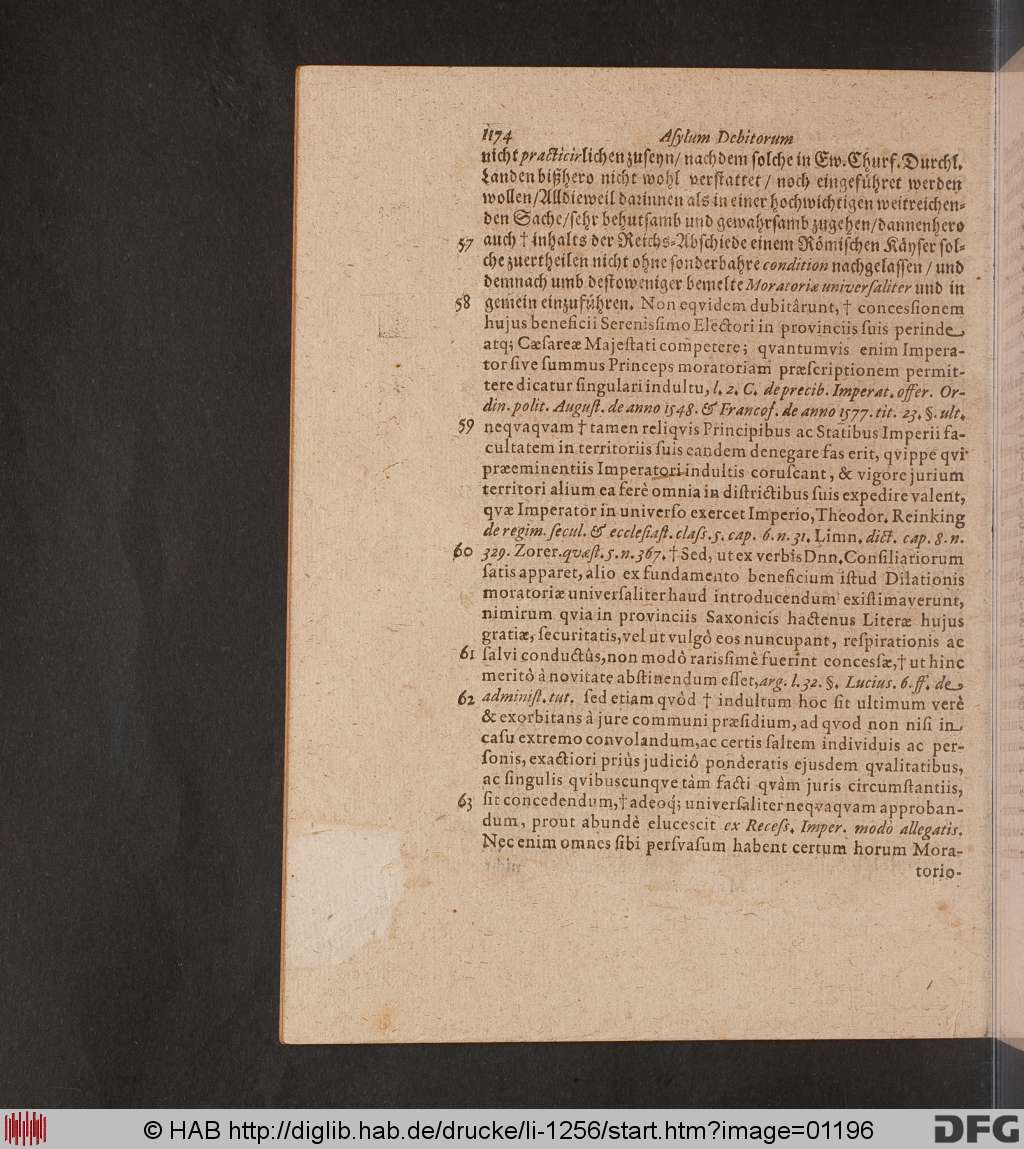 1174 Aſylum Debitorum
nicht practicirlichen zuſeyn/ nachdem ſolche in Ew. Churf. Durchl.
Landen bißhero nicht wohl verſtattet/ noch eingefuͤhret werden
wollen/Alldieweil darinnen als in einer hochwichtigen weitreichen-
den Sache/ſehr behutſamb und gewahrſamb zugehen/dannenhero
57 auch † inhalts der Reichs-Abſchiede einem Roͤmiſchen Kaͤyſer ſol-
che zuertheilen nicht ohne ſonderbahre condition nachgelaſſen / und
demnach umb deſtoweniger bemelte Moratoriæ univerſaliter und in
58 gemein einzufuͤhren. Non eqvidem dubitârunt, † concesſionem
hujus beneficii Serenisſimo Electori in provinciis ſuis perinde
atq; Cæſareæ Majeſtati competere; qvantumvis enim Impera-
tor ſive ſummus Princeps moratoriam præſcriptionem permit-
tere dicatur ſingulari indultu, l. 2. C. de precib. Imperat. offer. Or-
din. polit. Auguſt. de anno 1548. & Francof. de anno 1577. tit. 23. §. ult.
59 neqvaqvam † tamen reliqvis Principibus ac Statibus Imperii fa-
cultatem in territoriis ſuis eandem denegare fas erit, qvippe qvi
præeminentiis Imperatori indultis coruſcant, & vigore jurium
territori alium ea ferè omnia in diſtrictibus ſuis expedire valent,
qvæ Imperator in univerſo exercet Imperio, Theodor. Reinking
de regim. ſecul. & eccleſiaſt. claſſ. 5. cap. 6. n. 31. Limn. dict. cap. 8. n.
60 329. Zorer. quæſt. 5. n. 367. † Sed, ut ex verbis Dnn. Conſiliariorum
ſatis apparet, alio ex fundamento beneficium iſtud Dilationis
moratoriæ univerſaliter haud introducendum exiſtimaverunt,
nimirum qvia in provinciis Saxonicis hactenus Literæ hujus
gratiæ, ſecuritatis, vel ut vulgò eos nuncupant, reſpirationis ac
61 ſalvi conductûs, non modò rarisſimè fuerint conceſſæ, † ut hinc
meritò à novitate abſtinendum eſſet, arg. l. 32. §. Lucius. 6. ff. de
62 adminiſt. tut. ſed etiam qvòd † indultum hoc ſit ultimum verè
& exorbitans à jure communi præſidium, ad qvod non niſi in
caſu extremo convolandum, ac certis ſaltem individuis ac per-
ſonis, exactiori priùs judiciô ponderatis ejusdem qvalitatibus,
ac ſingulis qvibuscunqve tàm facti qvàm juris circumſtantiis,
63 ſit concedendum, † adeoq́; univerſaliter neqvaqvam approban-
dum, prout abundè elucescit ex Receſs. Imper. modò allegatis.
Nec enim omnes ſibi perſvaſum habent certum horum Mora-
torio-
© HAB http://diglib.hab.de/drucke/li-1256/start.htm?image=01196
DFG